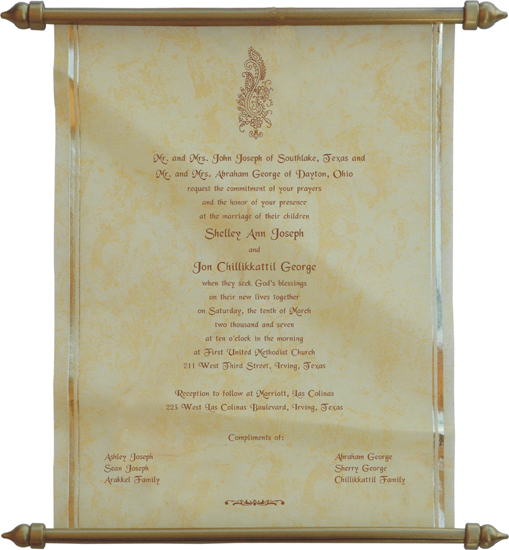 Mr. and Mrs. John Joseph of Southlake, Texas and
Mr. and Mrs. Abraham George of Dayton, Ohio
request the commitment of your prayers
and the honor of your presence
at the marriage of their children
Shelley Ann Joseph
and
Jon Chillikkattil George
when they seek God's blessings
on their new lives together
on Saturday, the tenth of March
two thousand and seven
at ten o'clock in the morning
at First United Methodist Church
211 West Third Street, Irving, Texas
Reception to follow at Marriott, Las Colinas
223 West Las Colinas Boulevard, Irving, Texas
Compliments of:
Ashley Joseph
Sean Joseph
Arakkel Family
Abraham George
Sherry George
Chillikkattil Family